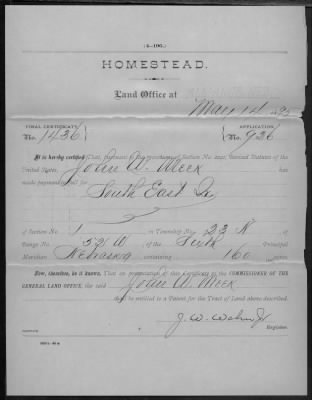 (4-196.)
HOMESTEAD.
Land Office at
May 1st
FINAL CERTIFICATE APPLICATION
No. 1436 No. 926
It is hereby certified That, pursuant to the provisions of Section No. 2291, Revised Statutes of the
United States, John W. Meek has
made payment in full for
South East Qr
of Section No. 1 in Township No. 23 N of
Range No. 52 W of the Sixth Principal
Meridian Nebraska containing 160 acres.
Now, therefore, be it known, That on presentation of this Certificate to the COMMISSIONER OF THE
GENERAL LAND OFFICE, the said John W. Meek
shall be entitled to a Patent for the Tract of Land above described.
J. W.
Register.